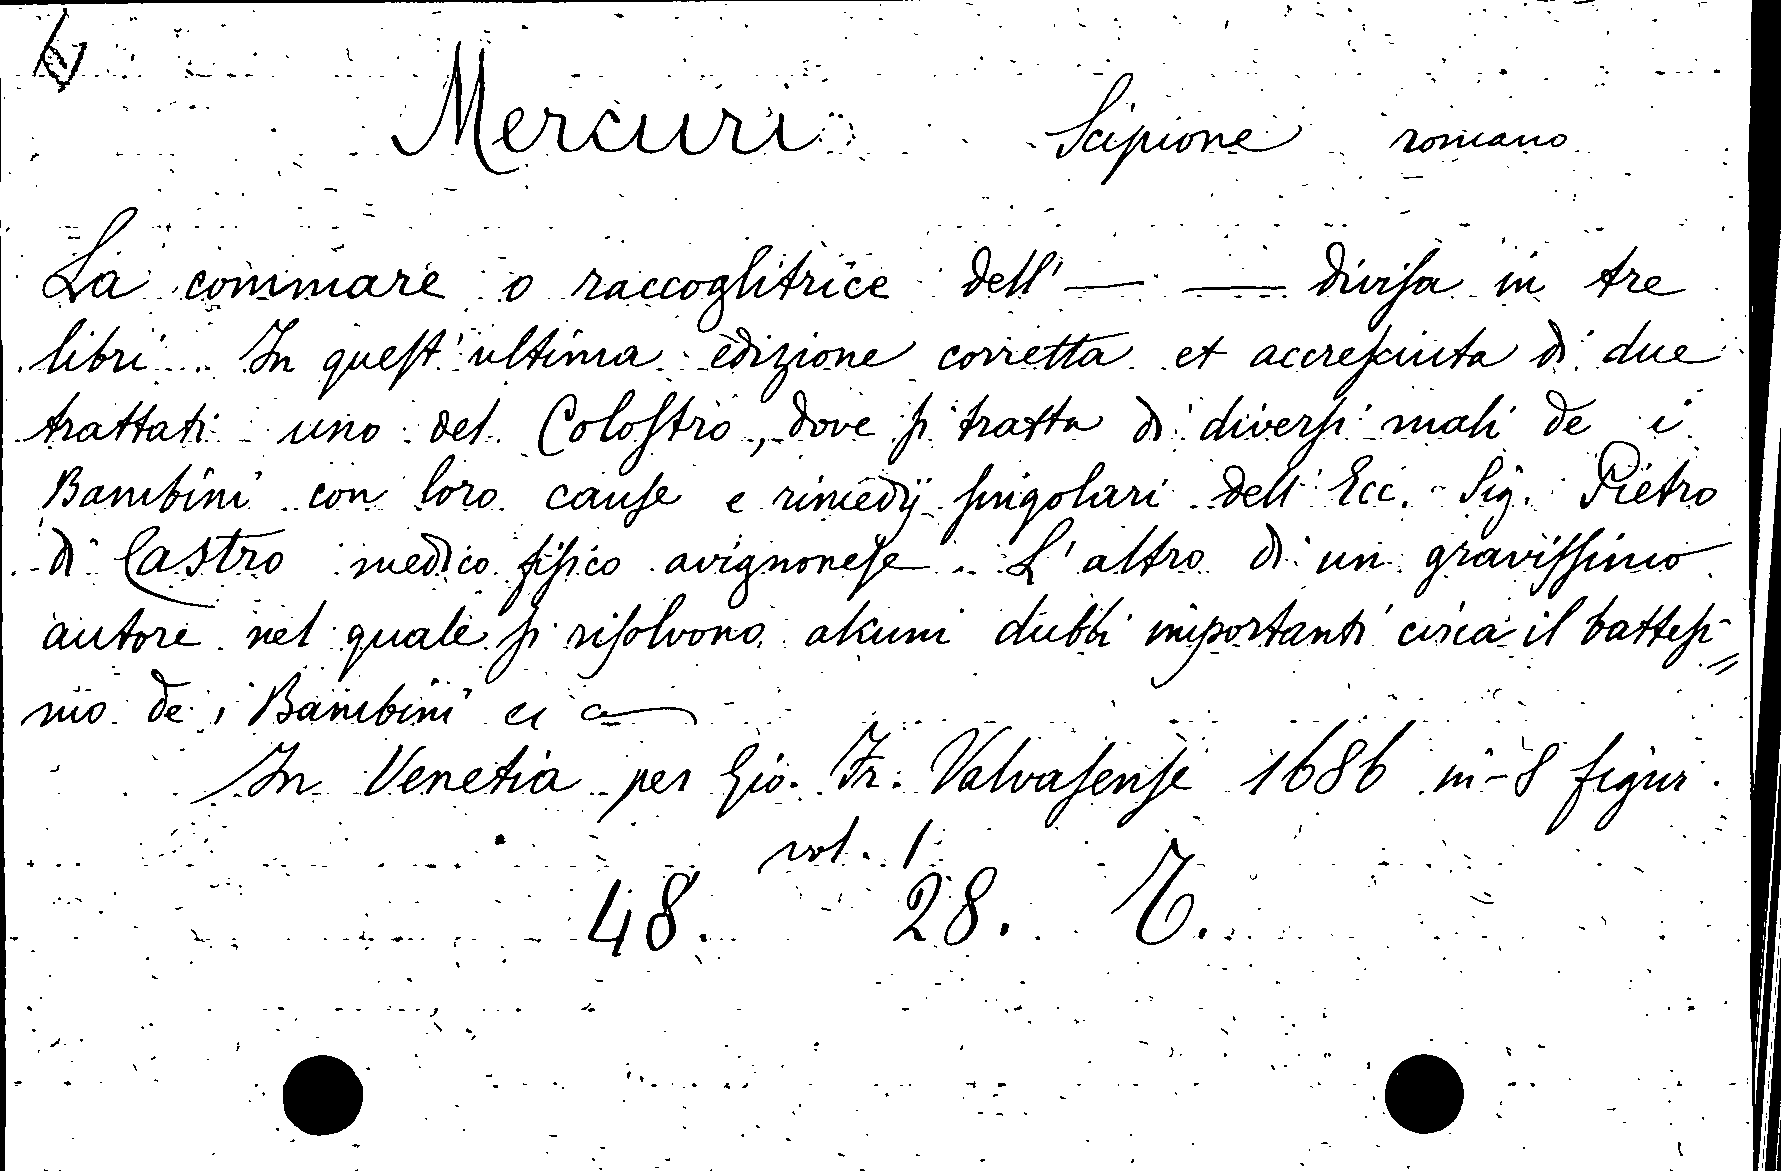 Mercuri Scipione romano
La commare o raccoglitrice dell' — — diviſa in tre
libri. In queſt' ultima edizione corretta et accreſciuta di due
trattati uno del Coloſtro, dove ſi tratta di diverſi mali de i
Bambini con loro cauſe e rimedij ſingolari dell' Ecc. Sig. Pietro
di Castro medico fiſico avignoneſe. L' altro di un graviſſimo
autore nel quale ſi riſolvono alcuni dubbi importanti circa il batteſi=
mo de i Bambini
In Venetia per Gio. Fr. Valvaſenſe 1686 in-8 figur.
vol. 1
48. 28. T.